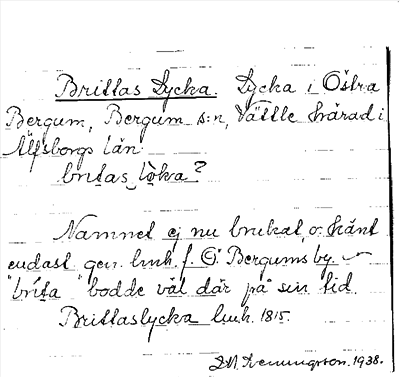 Brittas Lycka. Lycka i Östra
Bergum, Bergum s:n, Vättle härad i
Älfsborgs län.
britas lòka?
Namnet ej nu brukat, o. känt
endast gen. lmk. f. Ö. Bergums by.
"brita" bodde väl där på sin tid.
Brittaslycka lmk. 1815.
1938.